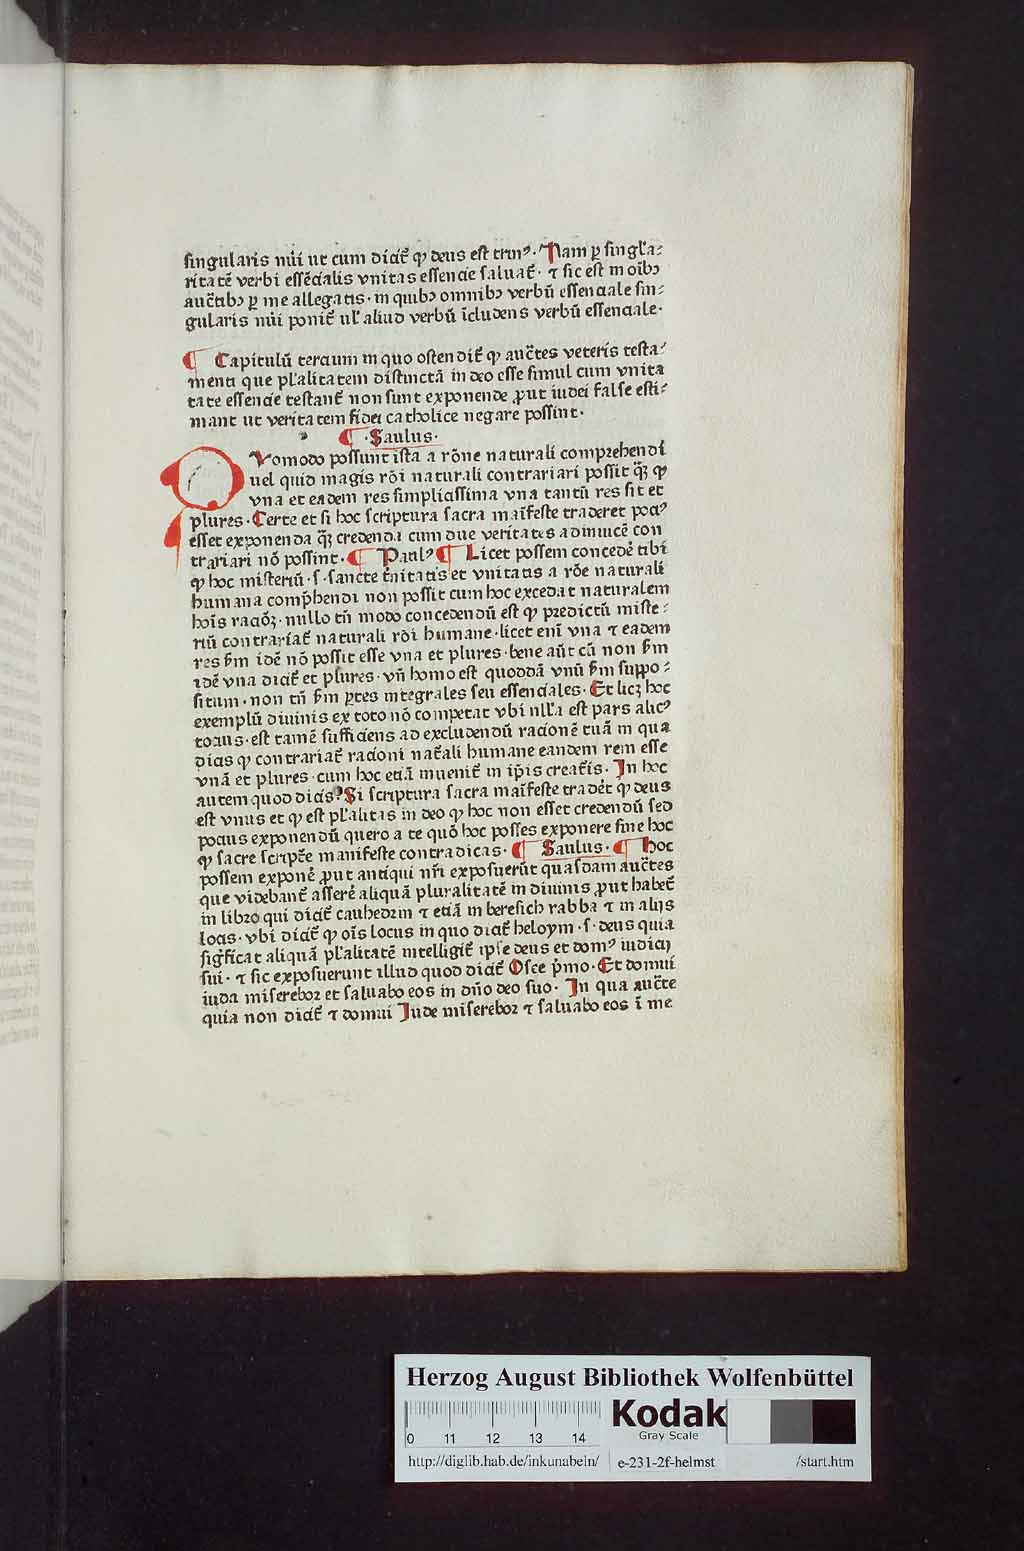 singularis nūi ut cum dicit̄ ꝙ deus est trinꝰ. Nam ꝑ singl̓a⸗
ritatē verbi essēcialis vnitas essencie saluat̄. ⁊ sic est in oībꝫ
auc̄tibꝫ ꝑ me allegatis. in quibꝫ omnibꝫ verbū essenciale sin⸗
gularis nūi ponit̄ ul̓ aliud verbū īcludens verbū essenciale.
¶ Capitulū tercium in quo ostendit̄ ꝙ auc̄tes veteris testa⸗
menti que pl̓alitatem distinctā in deo esse simul cum vnita
tate essencie testant̄ non sunt exponende ꝓut iudei false esti⸗
mant ut veritatem fidei catholice negare possint.
¶ .Saulus.
QVomodo possunt ista a rōne naturali comprehendi
uel quid magis rōi naturali contrariari possit qꝫ̄ ꝙ
vna et eadem res simplicissima vna tantū res sit et
plures. Certe et si hoc scriptura sacra maīfeste traderet pociꝰ
esset exponenda qꝫ̄ credenda cum due veritates adinuicē con
trariari nō possint. ¶ Paulꝰ ¶ Licet possem concedē tibi
ꝙ hoc misteriū .s. sancte t̄nitatis et vnitatis a rōe naturali
humana comp̄hendi non possit cum hoc excedat naturalem
hoīs racōꝫ. nullo tn̄ modo concedendū est ꝙ predictū miste⸗
riū contrariat̄ naturali rōi humane. licet enī vna ⁊ eadem
res ẜm idē nō possit esse vna et plures. bene aūt cū non ẜm
idē vna dicit̄ et plures. vn̄ homo est quoddā vnū ẜm suppo⸗
situm. non tn̄ ẜm ꝑtes integrales seu essenciales. Et licꝫ hoc
exemplū diuinis ex toto nō competat vbi nll̓a est pars alicꝰ
tocius. est tamē sufficiens ad excludendū racionē tuā in qua
dicis ꝙ contrariat̄ racioni nat̄ali humane eandem rem esse
vnā et plures. cum hoc etiā inuenit̄ in ip̄is creat̄is. In hoc
autem quod dicis? Si scriptura sacra maīfeste tradēt ꝙ deus
est vnus et ꝙ est pl̓alitas in deo ꝙ hoc non esset credendū sed
pocius exponendū quero a te quō hoc posses exponere sine hoc
ꝙ sacre script̄e manifeste contradicas. ¶ Saulus. ¶ Hoc
possem exponē ꝓut antiqui nr̄i exposuerūt quasdam auc̄tes
que videbant̄ asserē aliquā pluralitatē in diuinis ꝓut habet̄
in libro qui dicit̄ cauhedrin ⁊ etiā in beresich rabba ⁊ in alijs
locis. vbi dicit̄ ꝙ oīs locus in quo dicit̄ heloym .s. deus quia
sig̓ficat aliquā pl̓alitatē intelligit̄ ipse deus et domꝰ iudicij
sui. ⁊ sic exposuerunt illud quod dicit̄ Osce p̄mo. Et domui
iuda miserebor et saluabo eos in dn̄o deo suo. In qua auc̄te
quia non dicit̄ ⁊ domui Jude miserebor ⁊ saluabo eos ī me
Herzog August Bibliothek Wolfenbüttel
0 11 12 13 14
Kodak
Gray Scale
http://diglib.hab.de/inkunabeln/ e-231-2f-helmst /start.htm